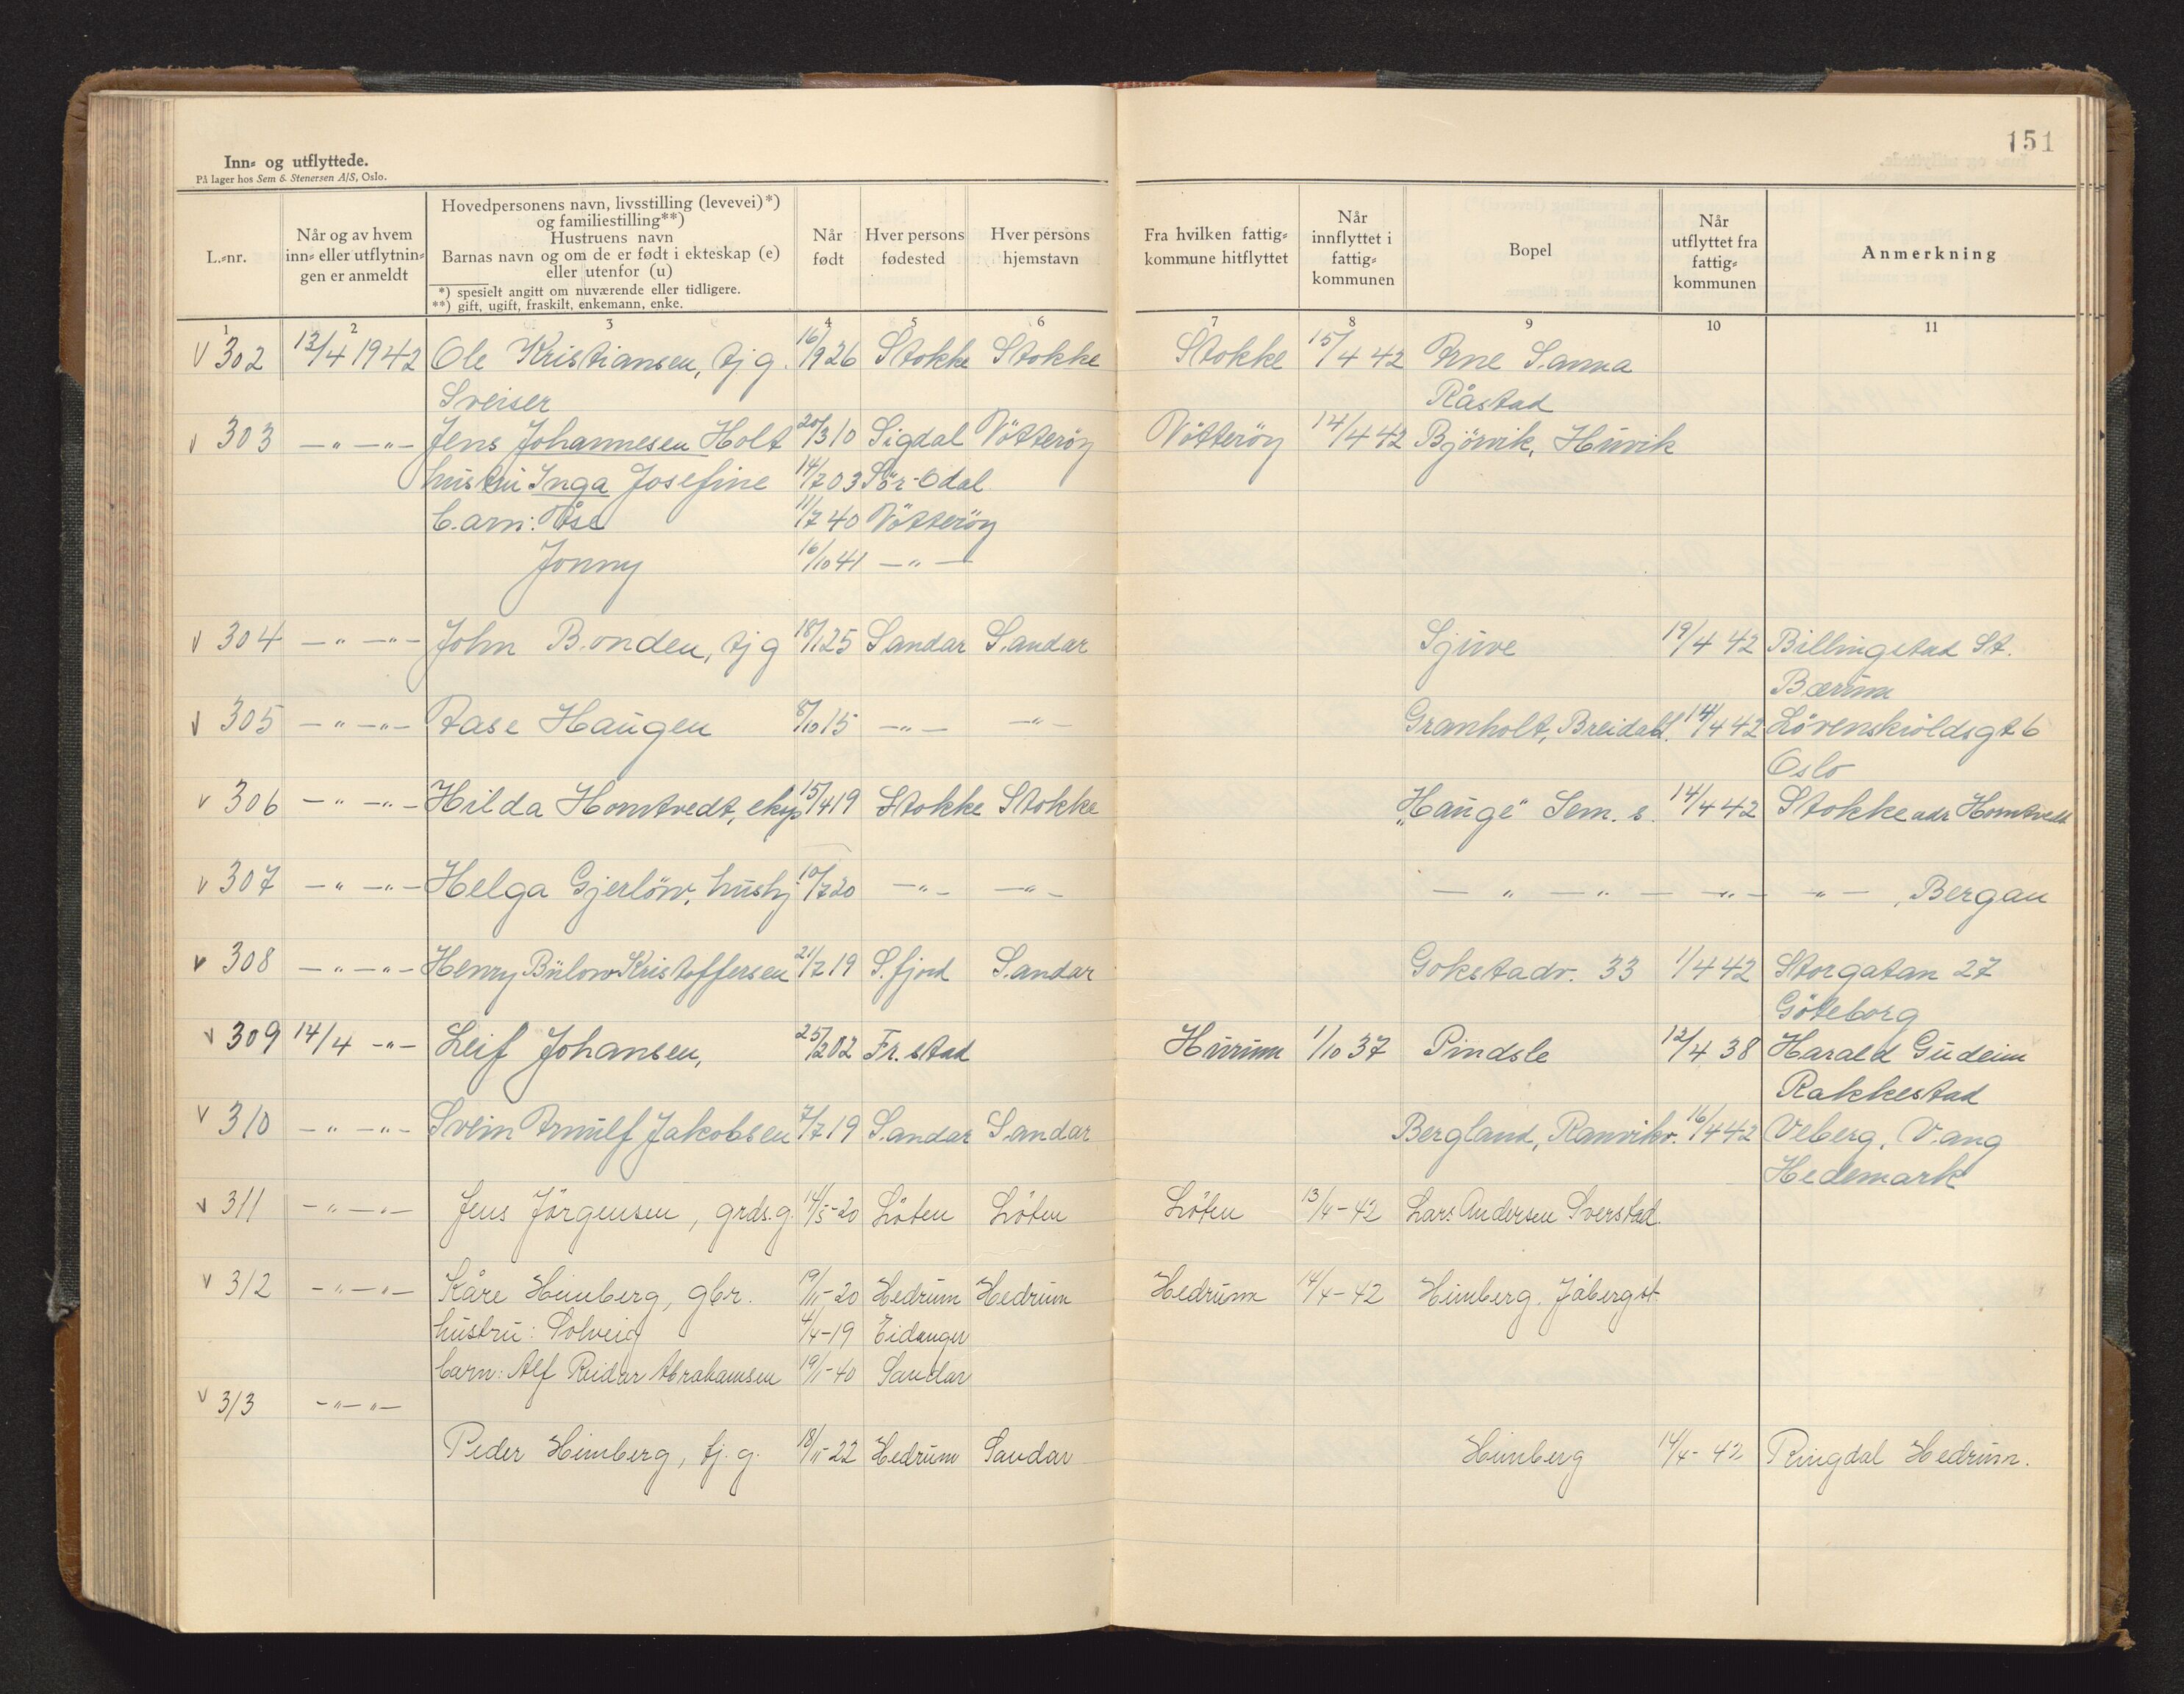 151
Inn- og utflyttede.
På lager hos Sem & Stenersen A/S, Oslo.
L.-nr. | Når og av hvem inn- eller utflytningen er anmeldt | Hovedpersonens navn, livsstilling (levevei)*) og familiestilling**) Hustruens navn Barnas navn og om de er født i ekteskap (e) eller utenfor (u) *) spesielt angitt om nuværende eller tidligere. **) gift, ugift, fraskilt, enkemann, enke. | Når født | Hver persons fødested | Hver persons hjemstavn | Fra hvilken fattigkommune hitflyttet | Når innflyttet i fattigkommunen | Bopel | Når utflyttet fra fattigkommunen | Anmerkning
1 2 3 4 5 6 7 8 9 10 11
V 302 13/4 1942 Ole Kristiansen, tj g. 16/9 26 Stokke Stokke Stokke 15/4 42 Arne Sanna
Sveiser Råstad
V 303 -"- -"- Jens Johannesen Holt 20/3 10 Sigdal Nötteröy Nötteröy 14/4 42 Björnvik, Huvik
hustru Inga Josefine 14/7 03 Sör-Odal
barn: Åse 11/7 40 Nötteröy
Jonny 16/10 41 -"-
V 304 -"- -"- John Bonden, tj g 18/1 25 Sandar Sandar Sjuve 19/4 42 Billingstad St.
Bærum
V 305 -"- -"- Aase Haugen 8/10 15 -"- -"- Granholt, Breidabl. 14/4 42 Lövenskioldsgt 6
Oslo
V 306 -"- -"- Hilda Homtvedt, eksp 15/4 19 Stokke Stokke "Hauge" Sem. s. 14/4 42 Stokke adr Homtvedt
V 307 -"- -"- Helga Gjerlöw, hushj. 10/7 20 -"- -"- -"- -"- -"- -"- , Bergan
V 308 -"- -"- Henry Bülow Kristoffersen 21/7 19 S.fjord Sandar Gokstadv. 33 1/4 42 Storgatan 27
Göteborg
V 309 14/4 -"- Leif Johansen, 25/2 02 Fr.stad Hurum 1/10 37 Pindsle 12/4 38 Harald Gudeim
Rakkestad
V 310 -"- -"- Svein Arnulf Jakobsen 7/7 19 Sandar Sandar Bergland, Ranvikv. 16/4 42 Veberg, Vang
Hedemark
V 311 -"- -"- Jens Jörgensen, grds.g. 14/5-20 Löten Löten Löten 13/4-42 Lars Andersen Sverstad.
V 312 -"- -"- Kåre Himberg, gbr. 19/11-20 Hedrum Hedrum Hedrum 14/4-42 Himberg. Jåbergst.
hustru: Solveig 4/4-19 Eidanger
barn: Alf Reidar Abrahamsen 19/1-40 Sandar
V 313 -"- -"-
Peder Himberg, tj. g. 18/11-22 Hedrum Sandar Himberg 14/4-42 Ringdal Hedrum.